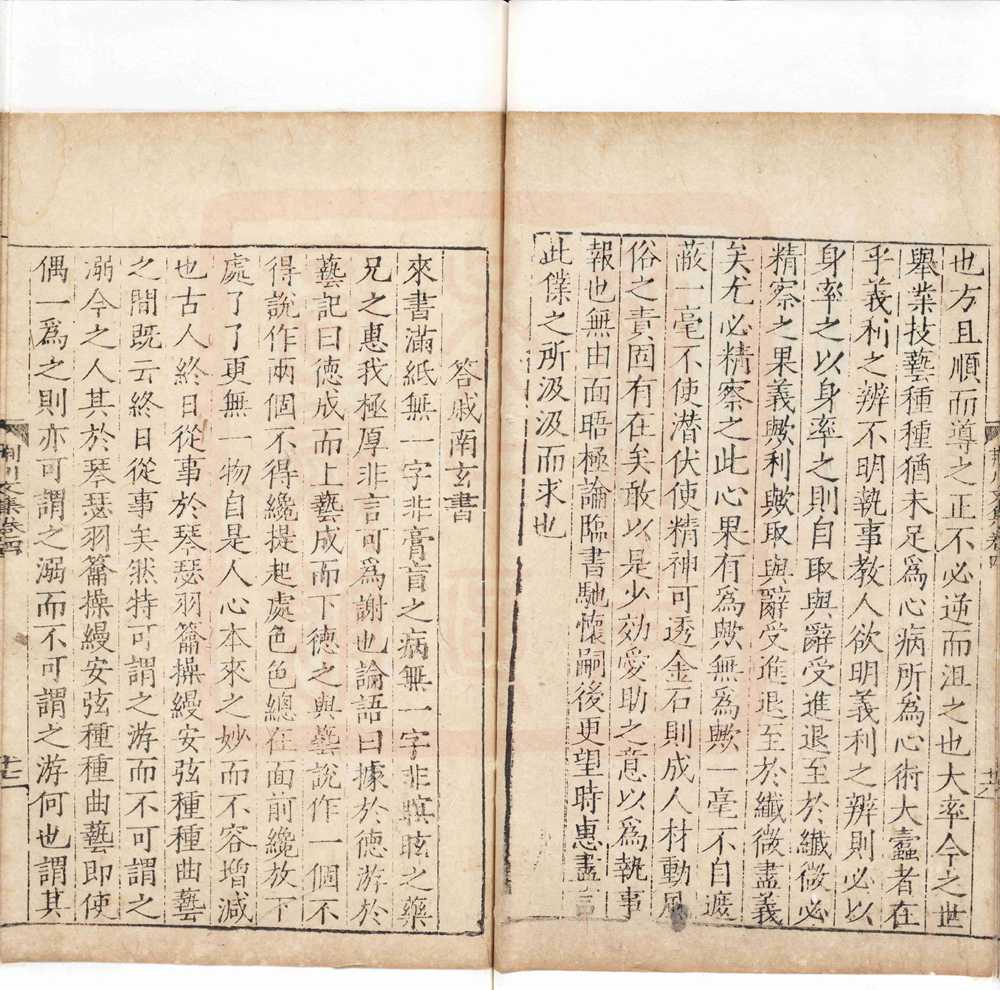 也方且順而導之正不必逆而沮之也大率今之世
舉業技藝種種猶未足爲心病所爲心術大蠹者在
乎義利之辨不明執事教人欲明義利之辨則必以
身率之以身率之則自取與辭受進退至於纖微必
精察之果義歟利歟取與辭受進退至於纖微盡義
矣尤必精察之此心果有爲歟無爲歟一毫不自遮
蔽一毫不使潜伏使精神可透金石則成人材動風
俗之責固有在矣敢以是少効愛助之意以爲執事
報也無由面晤極論臨書馳懷嗣後更望時惠盡言
此僕之所汲汲而求也
答戚南玄書
來書滿紙無一字非膏肓之病無一字非瞋眩之藥
兄之惠我極厚非言可爲謝也論語曰據於德游於
藝記曰德成而上藝成而下德之與藝說作一個不
得說作兩個不得纔提起處色色總在面前纔放下
處了了更無一物自是人心本來之妙而不容增減
也古人終日從事於琴瑟羽籥操縵安弦種種曲藝
之間既云終日從事矣然特可謂之游而不可謂之
溺今之人其於琴瑟羽籥操縵安弦種種曲藝即使
偶一爲之則亦可謂之溺而不可謂之游何也謂其
荆川文集卷四